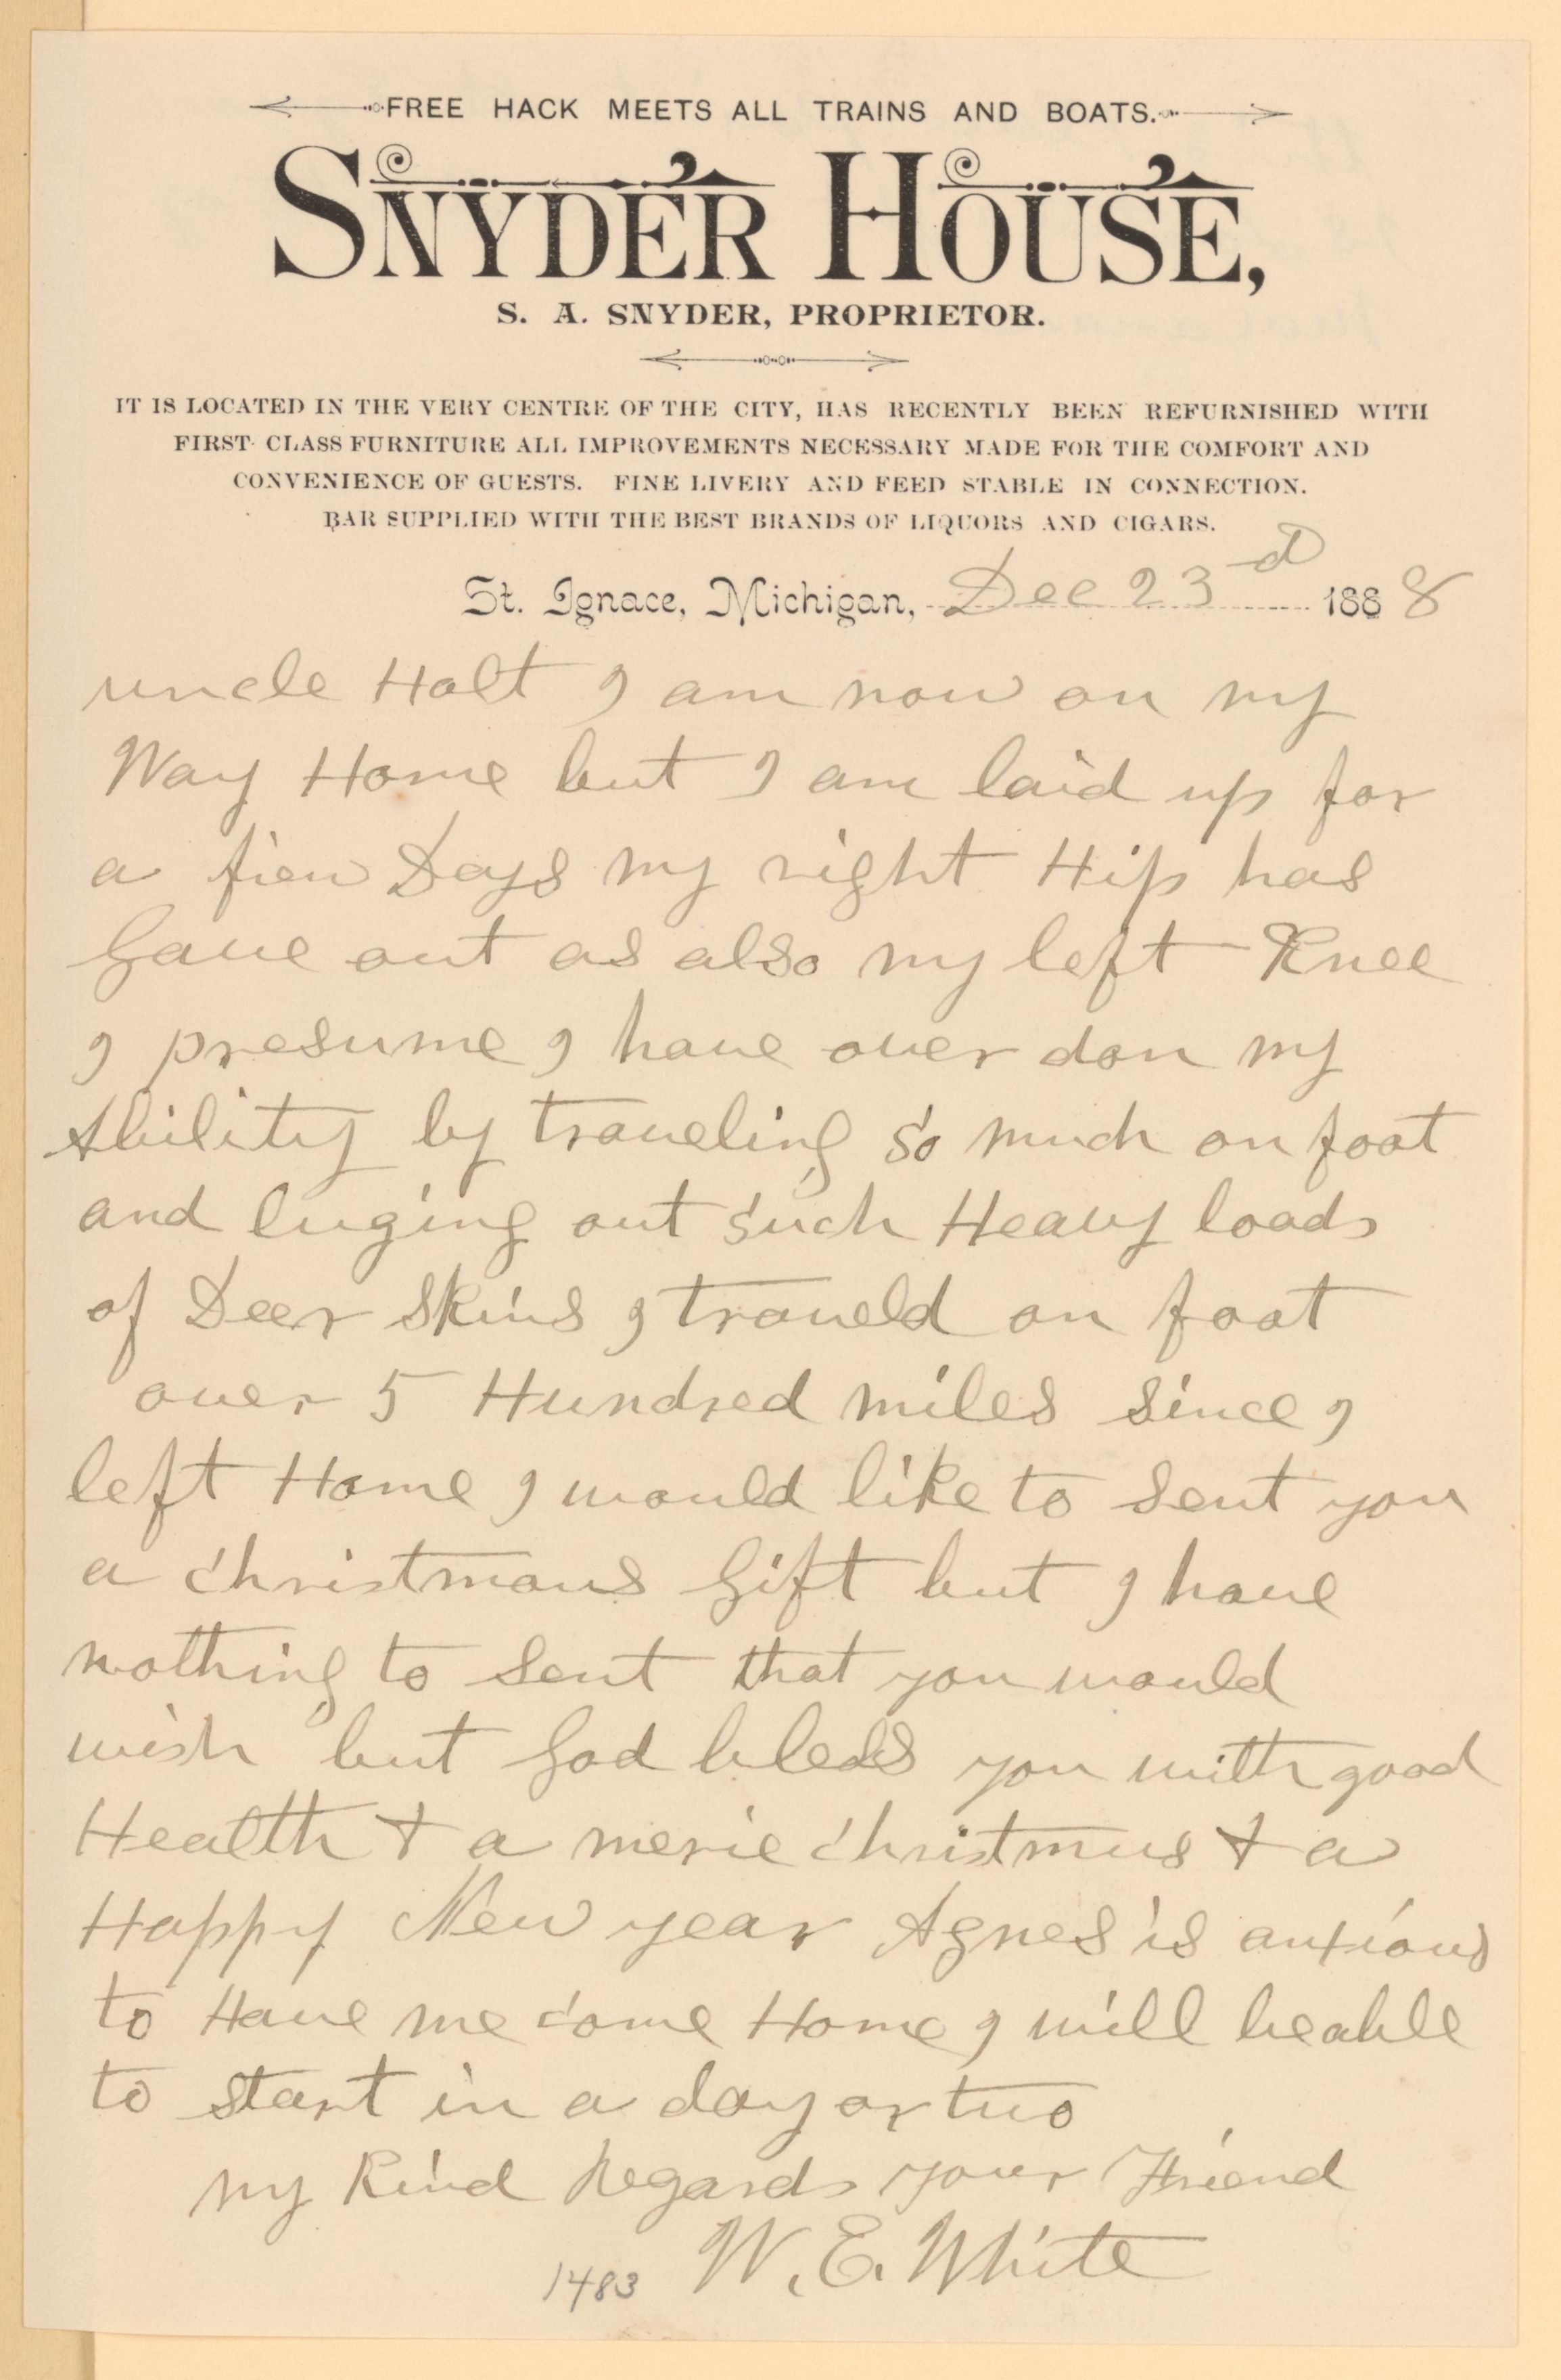 FREE HACK MEETS ALL TRAINS AND BOATS.
SNYDER HOUSE,
S. A. SNYDER, PROPRIETOR.
IT IS LOCATED IN THE VERY CENTRE OF THE CITY, HAS RECENTLY BEEN REFURNISHED WITH
FIRST CLASS FURNITURE ALL IMPROVEMENTS NECESSARY MADE FOR THE COMFORT AND
CONVENIENCE OF GUESTS. FINE LIVERY AND FEED STABLE IN CONNECTION.
BAR SUPPLIED WITH THE BEST BRANDS OF LIQUORS AND CIGARS.
St. Ignace, Michigan, Dec 23d 1888
uncle Holt I am now on my
Way Home but I am laid up for
a fiew Days my right Hip has
Gave out as also my left Knee
I presume I have over don my
Ability by traveling so much on foot
and luging out such Heavy loads
of Deer skins I traveld on foot
over 5 Hundred miles since I
left Home I would like to sent you
a christmaus Gift but I have
nothing to sent that you would
wish but God bless you with good
Health & a merie christmus & a
Happy New year Agnes is anxious
to Have me come Home I will beable
to start in a day or two
my Kind Regards your Friend
W. E. White
1483